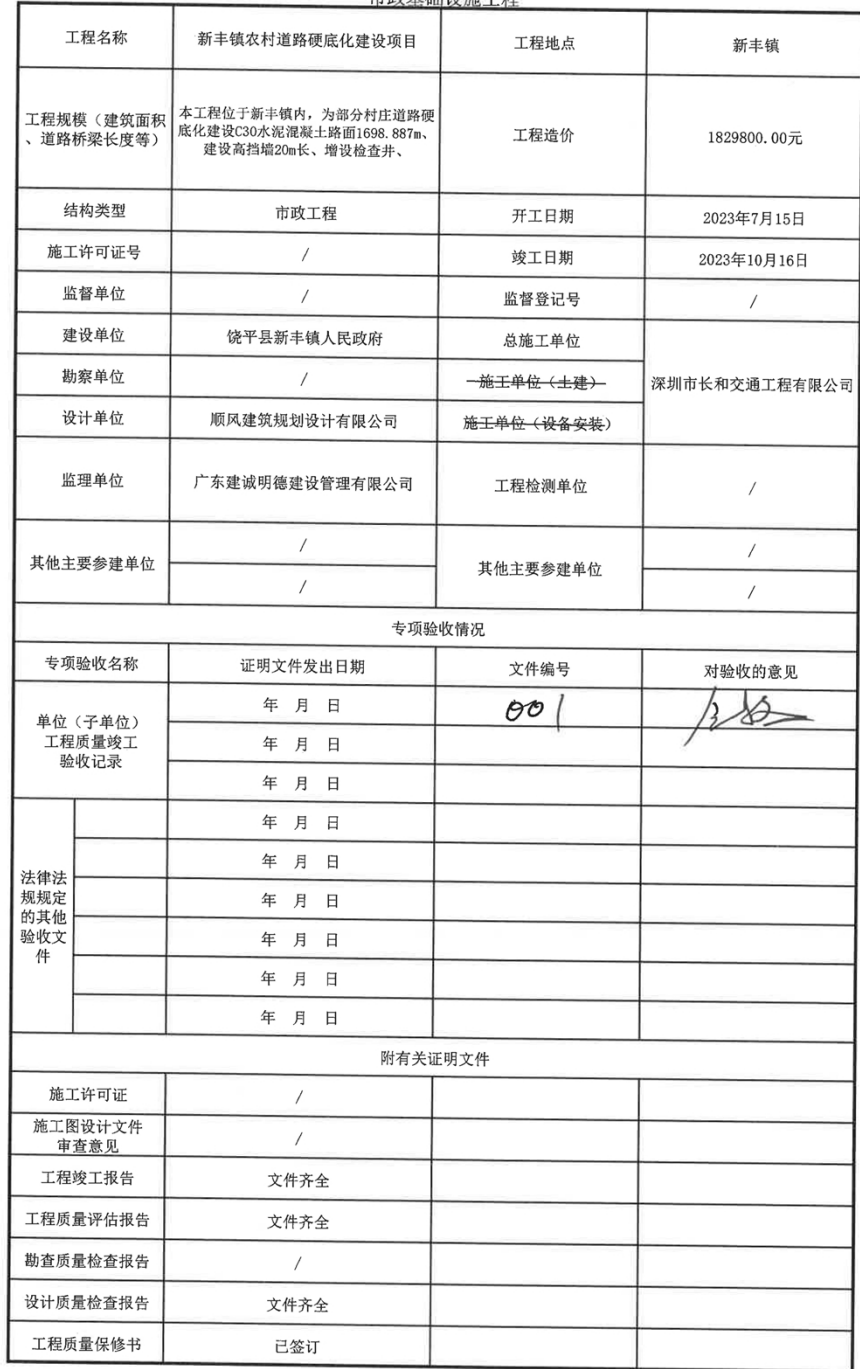 市政基础设施工程
工程名称
新丰镇农村道路硬底化建设项目
工程地点
新丰镇
工程规模（建筑面积
、道路桥梁长度等）
本工程位于新丰镇内，为部分村庄道路硬
底化建设C30水泥混凝土路面1698.887m、
建设高挡墙20m长、增设检查井、
工程造价
1829800.00元
结构类型
市政工程
开工日期
2023年7月15日
施工许可证号
/
竣工日期
2023年10月16日
监督单位
/
监督登记号
/
建设单位
饶平县新丰镇人民政府
总施工单位
深圳市长和交通工程有限公司
勘察单位
/
施工单位（土建）
设计单位
顺风建筑规划设计有限公司
施工单位（设备安装）
监理单位
广东建诚明德建设管理有限公司
工程检测单位
/
其他主要参建单位
/
/
其他主要参建单位
/
/
专项验收情况
专项验收名称
证明文件发出日期
文件编号
对验收的意见
单位（子单位）
工程质量竣工
验收记录
年 月 日
001
年 月 日
年 月 日
法律法
规规定
的其他
验收文
件
年 月 日
年 月 日
年 月 日
年 月 日
年 月 日
年 月 日
附有关证明文件
施工许可证
/
施工图设计文件
审查意见
/
工程竣工报告
文件齐全
工程质量评估报告
文件齐全
勘查质量检查报告
/
设计质量检查报告
文件齐全
工程质量保修书
已签订